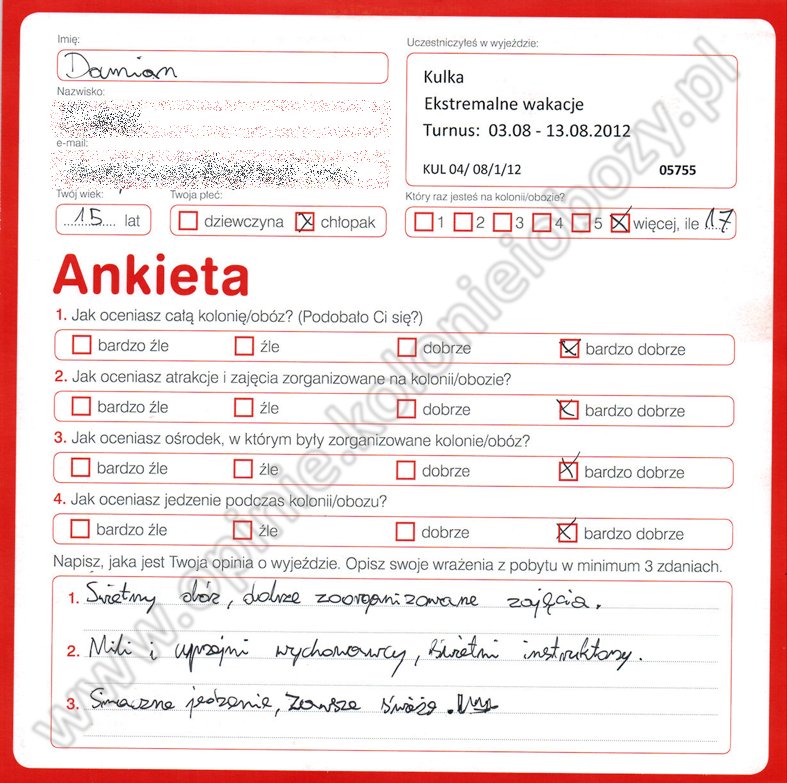 Imię:
Damian
Nazwisko:
e-mail:
Twój wiek:
15 lat
Twoja płeć:
dziewczyna chłopak
Uczestniczyłeś w wyjeździe:
Kulka
Ekstremalne wakacje
Turnus: 03.08 - 13.08.2012
KUL 04/ 08/1/12 05755
Który raz jesteś na kolonii/obozie?
1 2 3 4 5 więcej, ile 17
Ankieta
1. Jak oceniasz całą kolonię/obóz? (Podobało Ci się?)
bardzo źle źle dobrze bardzo dobrze
2. Jak oceniasz atrakcje i zajęcia zorganizowane na kolonii/obozie?
bardzo źle źle dobrze bardzo dobrze
3. Jak oceniasz ośrodek, w którym były zorganizowane kolonie/obóz?
bardzo źle źle dobrze bardzo dobrze
4. Jak oceniasz jedzenie podczas kolonii/obozu?
bardzo źle źle dobrze bardzo dobrze
Napisz, jaka jest Twoja opinia o wyjeździe. Opisz swoje wrażenia z pobytu w minimum 3 zdaniach.
1. Świetny obóz, dobrze zoorganizowane zajęcia.
2. Mili i uprzejmi wychowawcy, świetni instruktorzy.
3. Smaczne jedzenie, zawsze świeże.
www.opinie.kolonieiobozy.pl